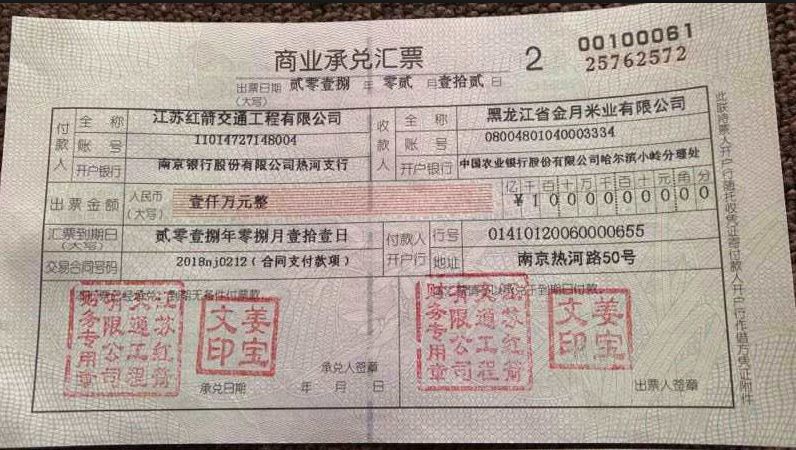 商业承兑汇票 2 00100061
25762572
出票日期 贰零壹捌 年 零贰 月 壹拾贰 日
(大写)
付款人 全称 江苏红箭交通工程有限公司 收款人 全称 黑龙江省金月米业有限公司
账号 11014727148004 账号 08004801040003334
开户银行 南京银行股份有限公司热河支行 开户银行 中国农业银行股份有限公司哈尔滨小岭分理处
出票金额 人民币(大写) 壹仟万元整 亿千百十万千百十元角分
¥1000000000
汇票到期日(大写) 贰零壹捌年零捌月壹拾壹日 付款人开户行 行号 01410120060000655
交易合同号码 2018nj0212(合同支付款项) 地址 南京热河路50号
到期无条件付票款
于到期日付款
江苏红箭交通工程有限公司财务专用章
姜宝文印
江苏红箭交通工程有限公司财务专用章
姜宝文印
承兑人签章
承兑日期 年 月 日
出票人签章
此联持票人开户行随托收凭证寄付款人开户行作借方凭证附件